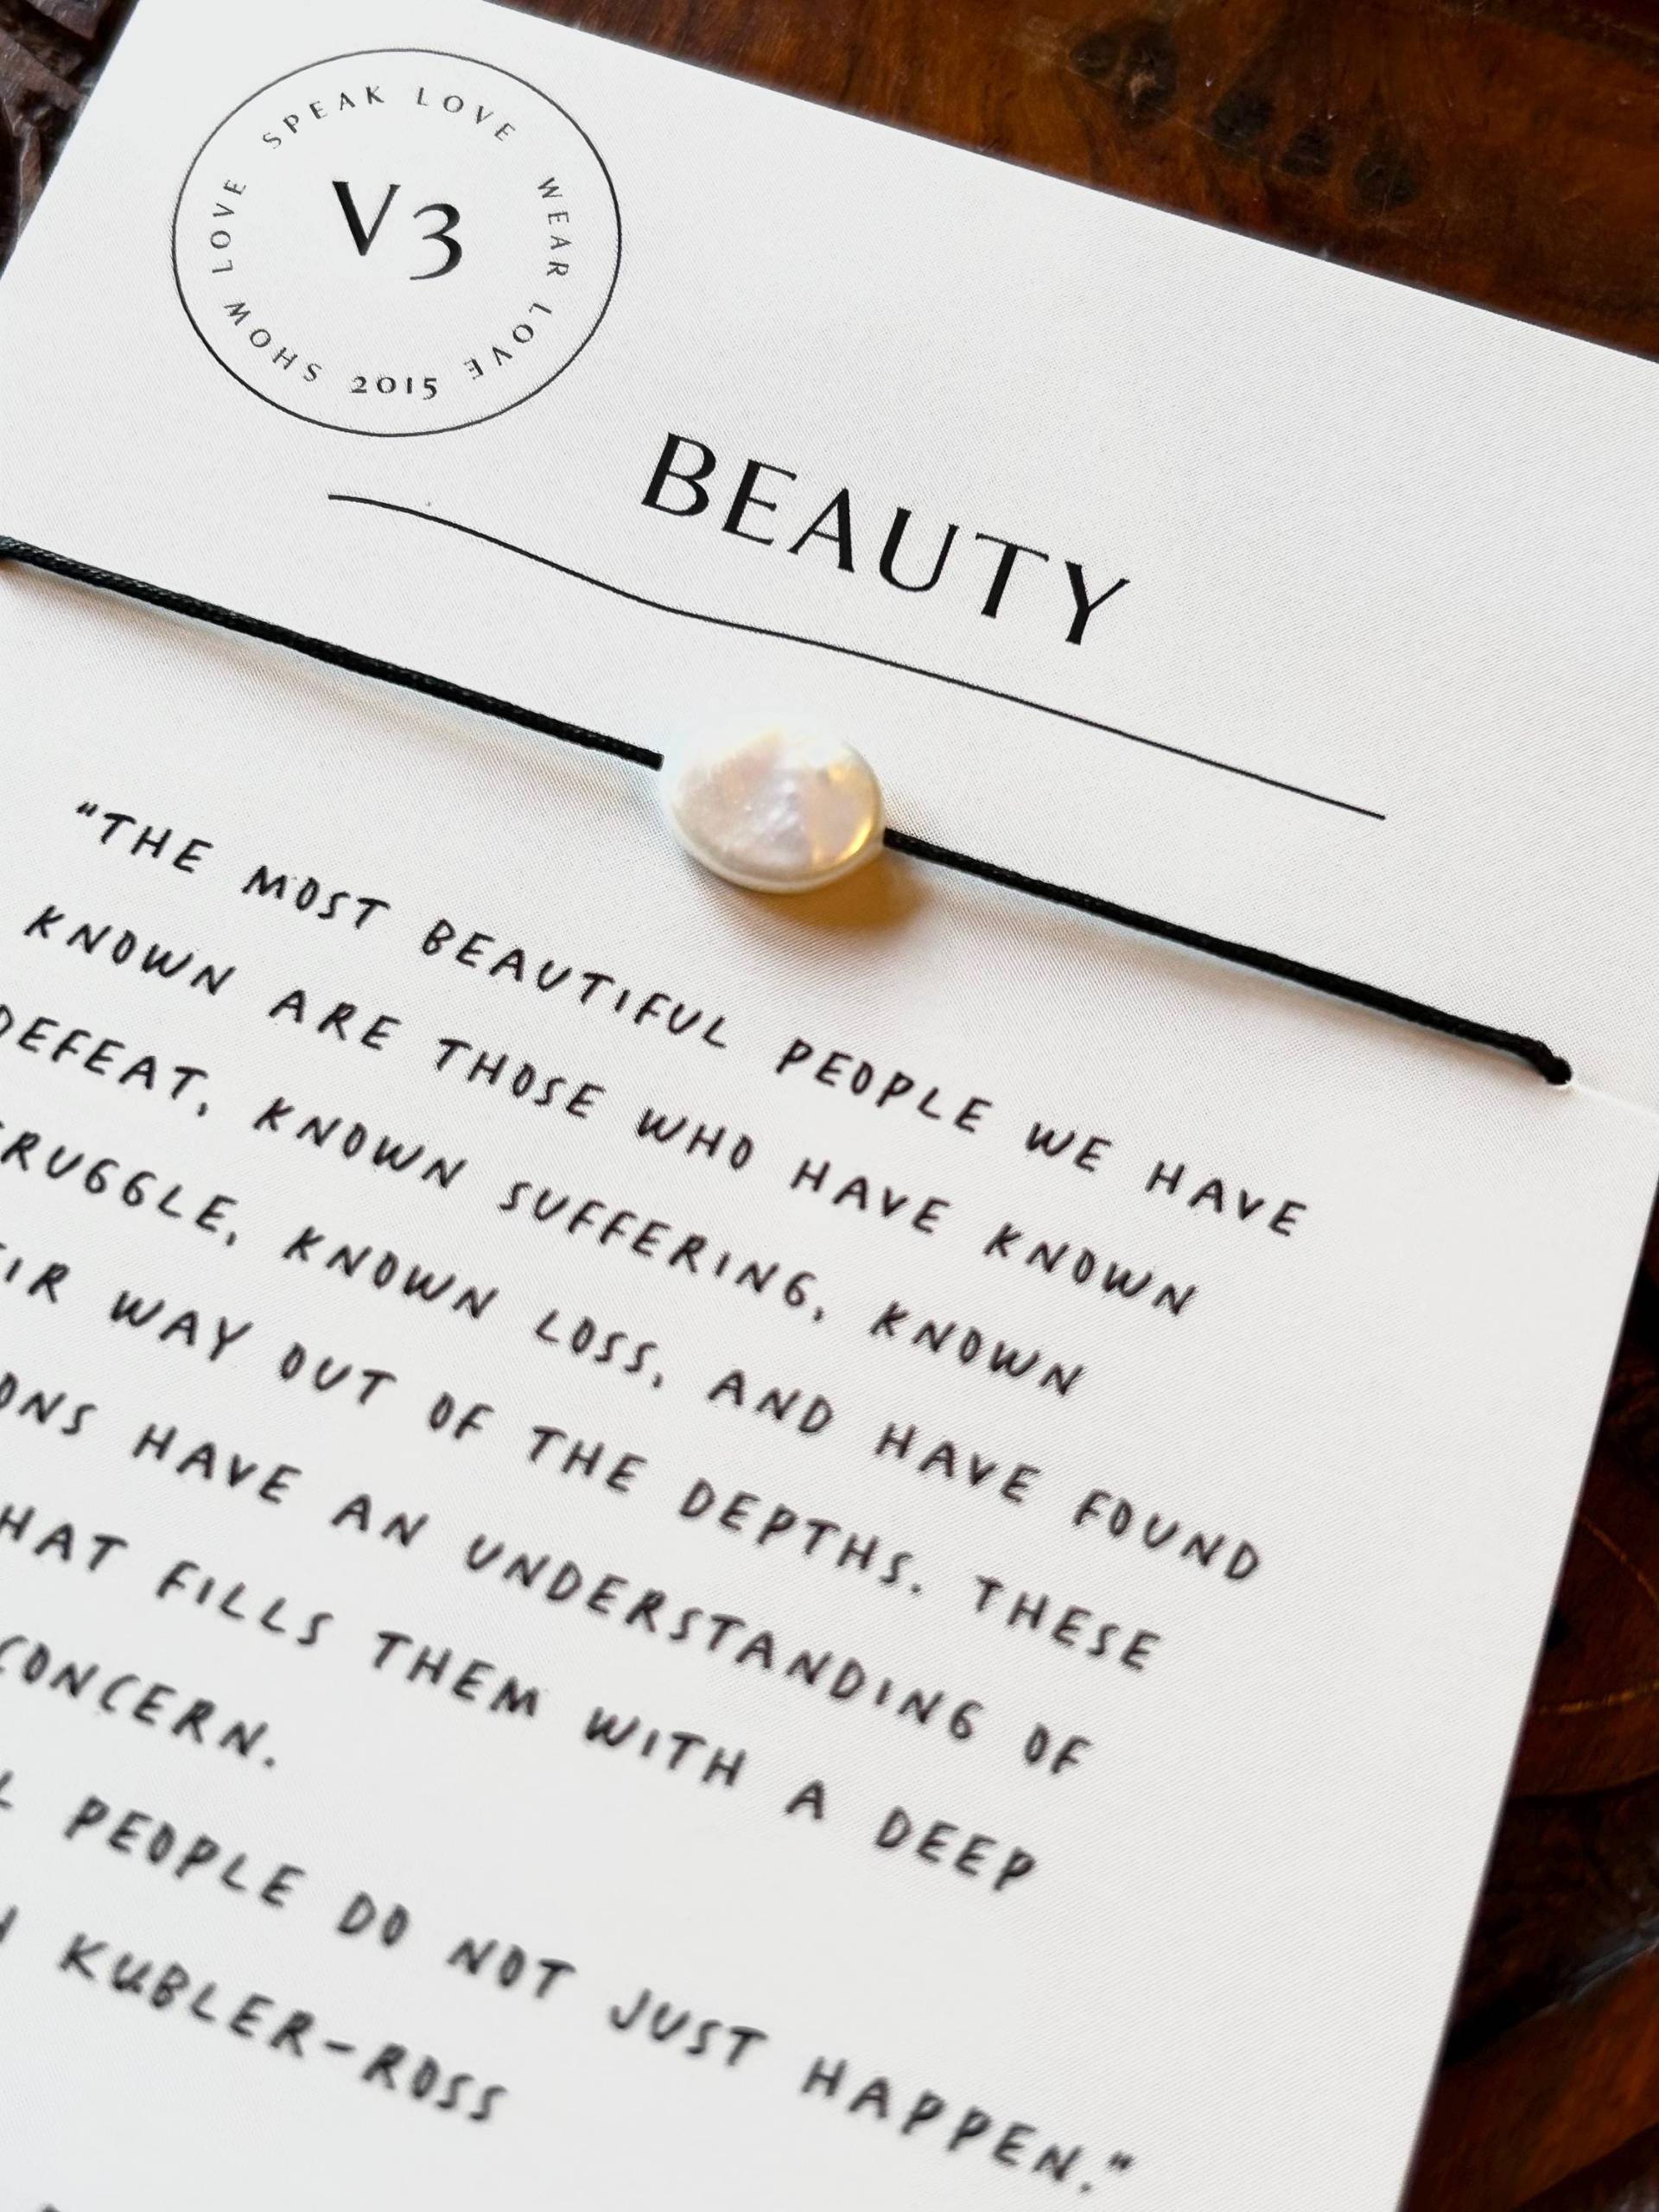 SPEAK LOVE WEAR LOVE
SHOW LOVE
V3
2015
BEAUTY
"THE MOST BEAUTIFUL PEOPLE WE HAVE
KNOWN ARE THOSE WHO HAVE KNOWN
DEFEAT, KNOWN SUFFERING, KNOWN
KNOWN LOSS, AND HAVE FOUND
WAY OUT OF THE DEPTHS. THESE
HAVE AN UNDERSTANDING OF
FILLS THEM WITH A DEEP
CONCERN.
PEOPLE DO NOT JUST HAPPEN."
KUBLER-ROSS